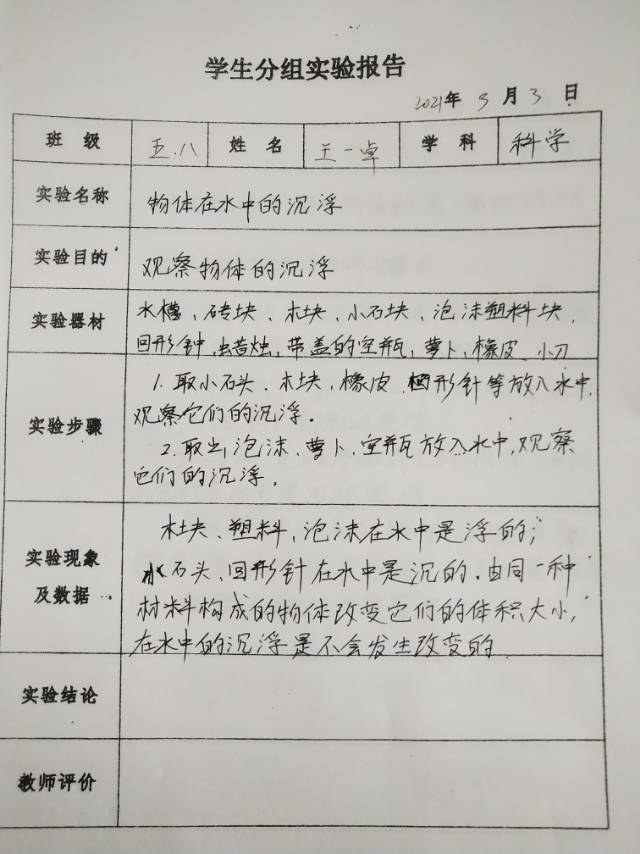 学生分组实验报告
2021年 3月3日
班级 五.八 姓名 王一卓 学科 科学
实验名称 物体在水中的沉浮
实验目的 观察物体的沉浮
实验器材 水槽、砖块、木块、小石块、泡沫塑料块、
回形针、蜡烛、带盖的空瓶、萝卜、橡皮、小刀
实验步骤
1.取小石头、木块,橡皮、回形针等放入水中,
观察它们的沉浮.
2.取出泡沫、萝卜、空瓶放入水中,观察
它们的沉浮.
实验现象及数据
木块、塑料,泡沫在水中是浮的;
石头、回形针在水中是沉的.由同一种
材料构成的物体改变它们的体积大小,
在水中的沉浮是不会发生改变的
实验结论
教师评价